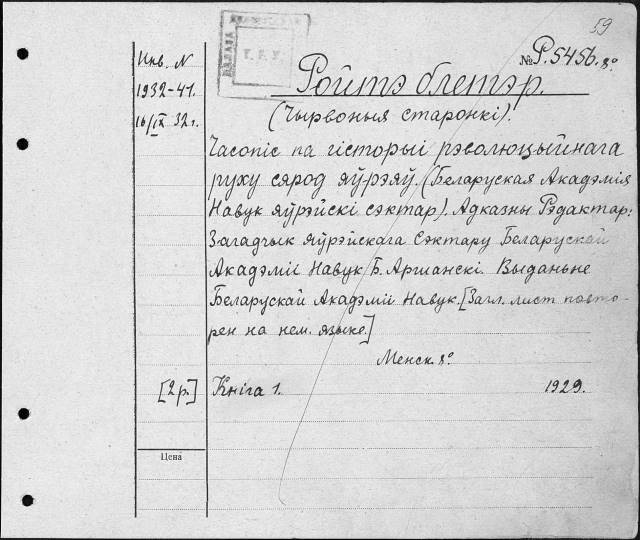 59
Инв. N
№Р.5456.8º
Г. Р. У.
Ройтэ блетэр.
1932-41.
(Чырвоныя старонкі).
16/IX 32 г.
Часопіс па гісторыі рэволюцыйнага
руху сярод яўрэяў. (Беларуская Акадэмія
Навук яўрэйскі сэктар). Адказны Рэдактар:
Загадчык яўрэйскага Сэктару Беларускай
Акадэміі Навук Б. Аршанскі. Выданьне
Беларускай Акадэміі Навук. [Загл. лист повто-
рен на нем. языке.]
Менск. 8º
[2 р.] Кніга 1. 1929.
Цена